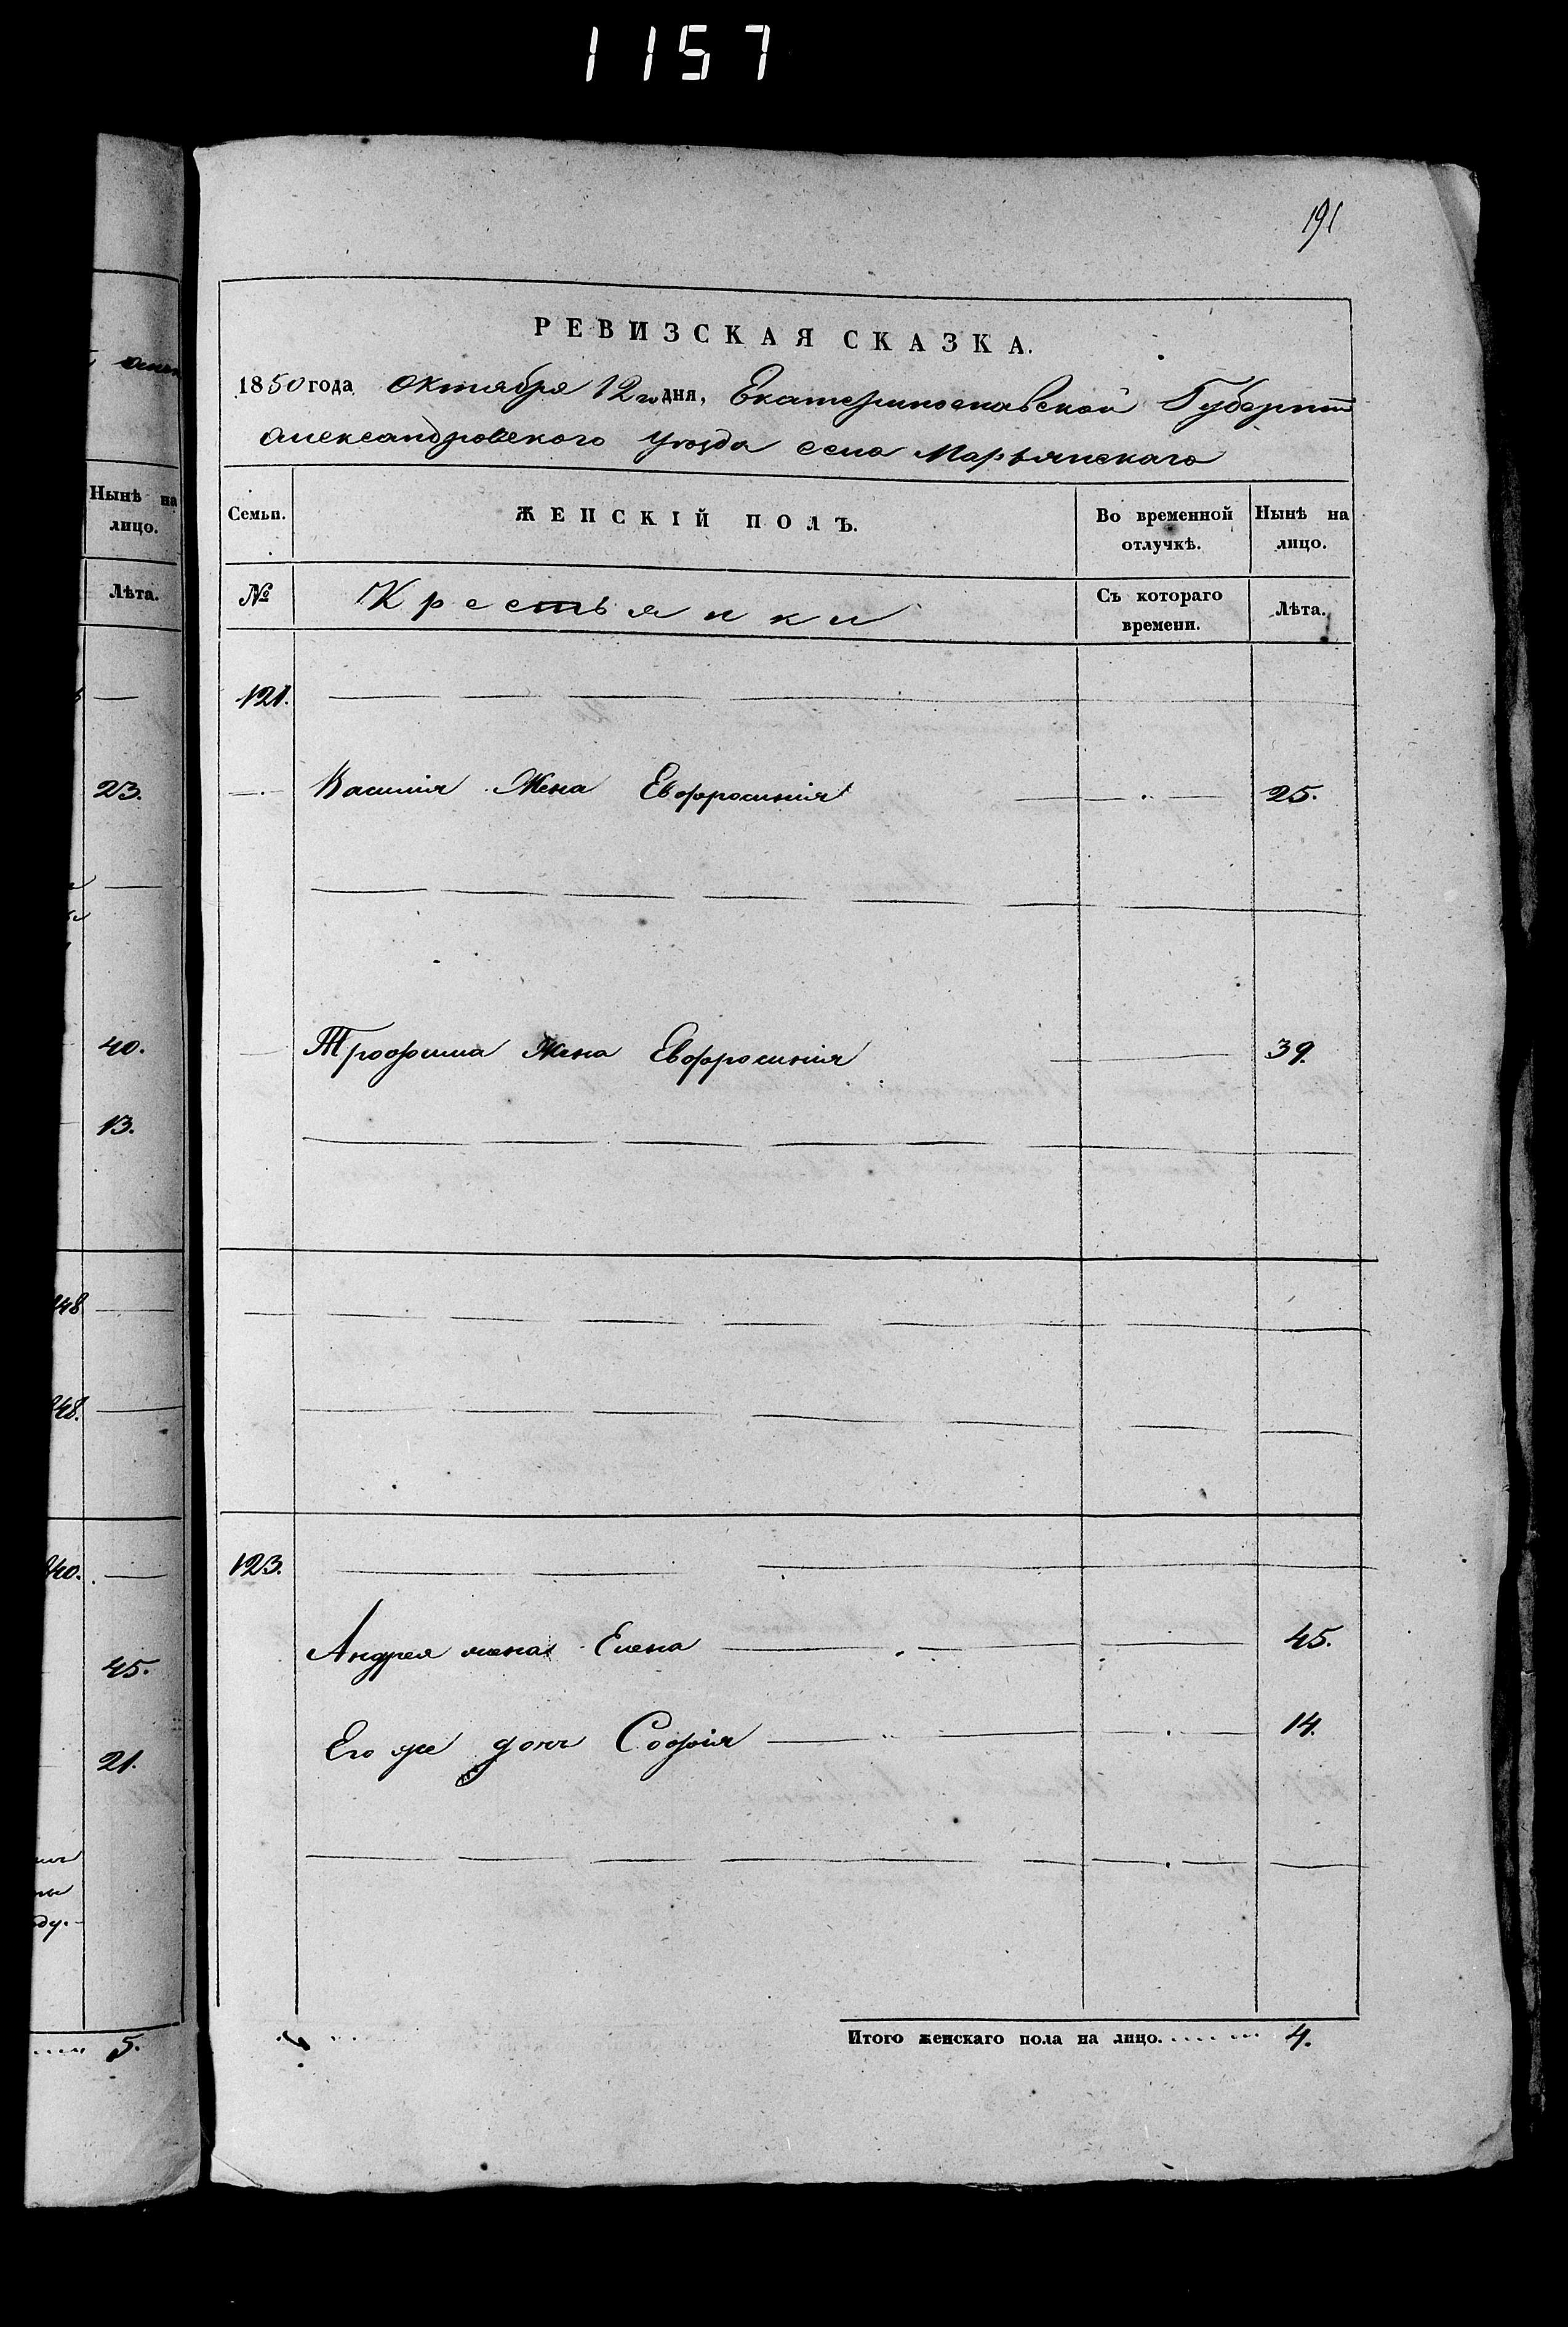 1157
191
ной
Нынѣ на
лицо.
Лѣта.
23.
40.
13.
848
848.
840.
45.
21.
ду.
5.
РЕВИЗСКАЯ СКАЗКА.
1850 года Октября 12го дня, Екатеринославской Губерніи
Александровского уѣзда села Марьянскаго
Семьи.
ЖЕНСКІЙ ПОЛЪ.
Во временной
отлучкѣ.
Нынѣ на
лицо.
№
Крестьянки
Съ котораго
времени.
Лѣта.
121.
Василія Жена Евфросинія 25.
Трофима Жена Евфросинія 39.
123.
Андрея жена Елена 45.
Его же дочь Софія 14.
Итого женскаго пола на лицо. 4.